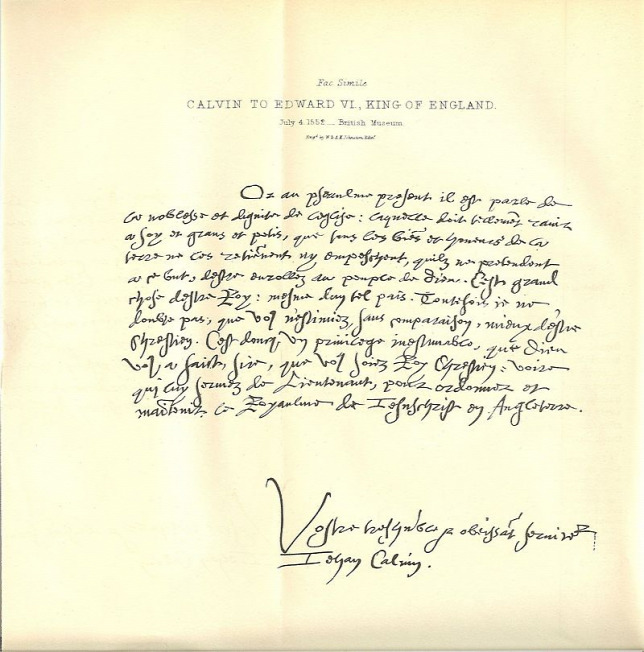 Fac Simile
CALVIN TO EDWARD VI., KING OF ENGLAND.
July 4. 1552 _ British Museum.
Or au pseaulme present il est parle de
la noblesse et dignite de leglise: laquelle doit tellemēt
a soy et grans et petis, que tous les biēs et honeurs de la
terre ne les retiēnent ny empeschent, quilz ne pretendent
a ce but, destre enrollez au peuple de dieu. Cest grand
chose destre Roy: mesme dun tel pais. Toutesfois ie ne
doubte pas, que vos nestimiez, sans comparaison, mieux destre
Chrestien. Cest doncq un privilege inestimable, que dieu
vos a faict, sire, que vos soiez Roy Chrestien: voire
qui luy servez de Lieutenant, pour ordonner et
maītenir le Royaulme de Iesuschrist en Angleterre.
Vostre treshūble et obeissāt serviteur
Iehan Calvin.